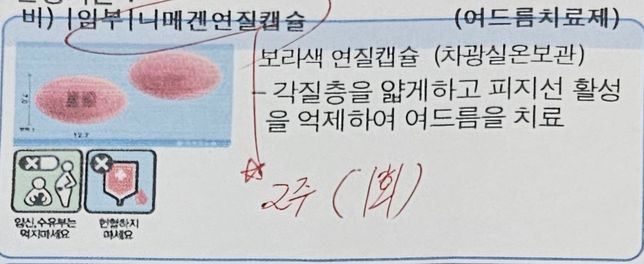 비) |일부|니메겐연질캡슐 (여드름치료제)
보라색 연질캡슐 (차광실온보관)
- 각질층을 얇게하고 피지선 활성
을 억제하여 여드름을 치료
12.7
임신,수유부는
먹지마세요
헌혈하지
마세요
2주 (1회)